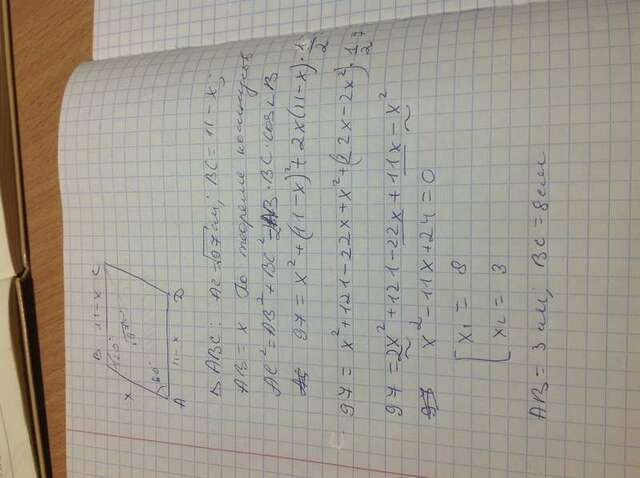 B 11-x C
x 120°
√97
60°
A 11-x D
Δ ABC: AC=√97 см; BC=11-x;
AB=x По теореме косинусов
AC²=AB²+BC²-2AB·BC·cos∠B
97=x²+(11-x)²+2x(11-x)·1/2
97=x²+121-22x+x²+(22x-2x²)·1/2
97=2x²+121-22x+11x-x²
x²-11x+24=0
x₁=8
x₂=3
AB=3 см; BC=8 см